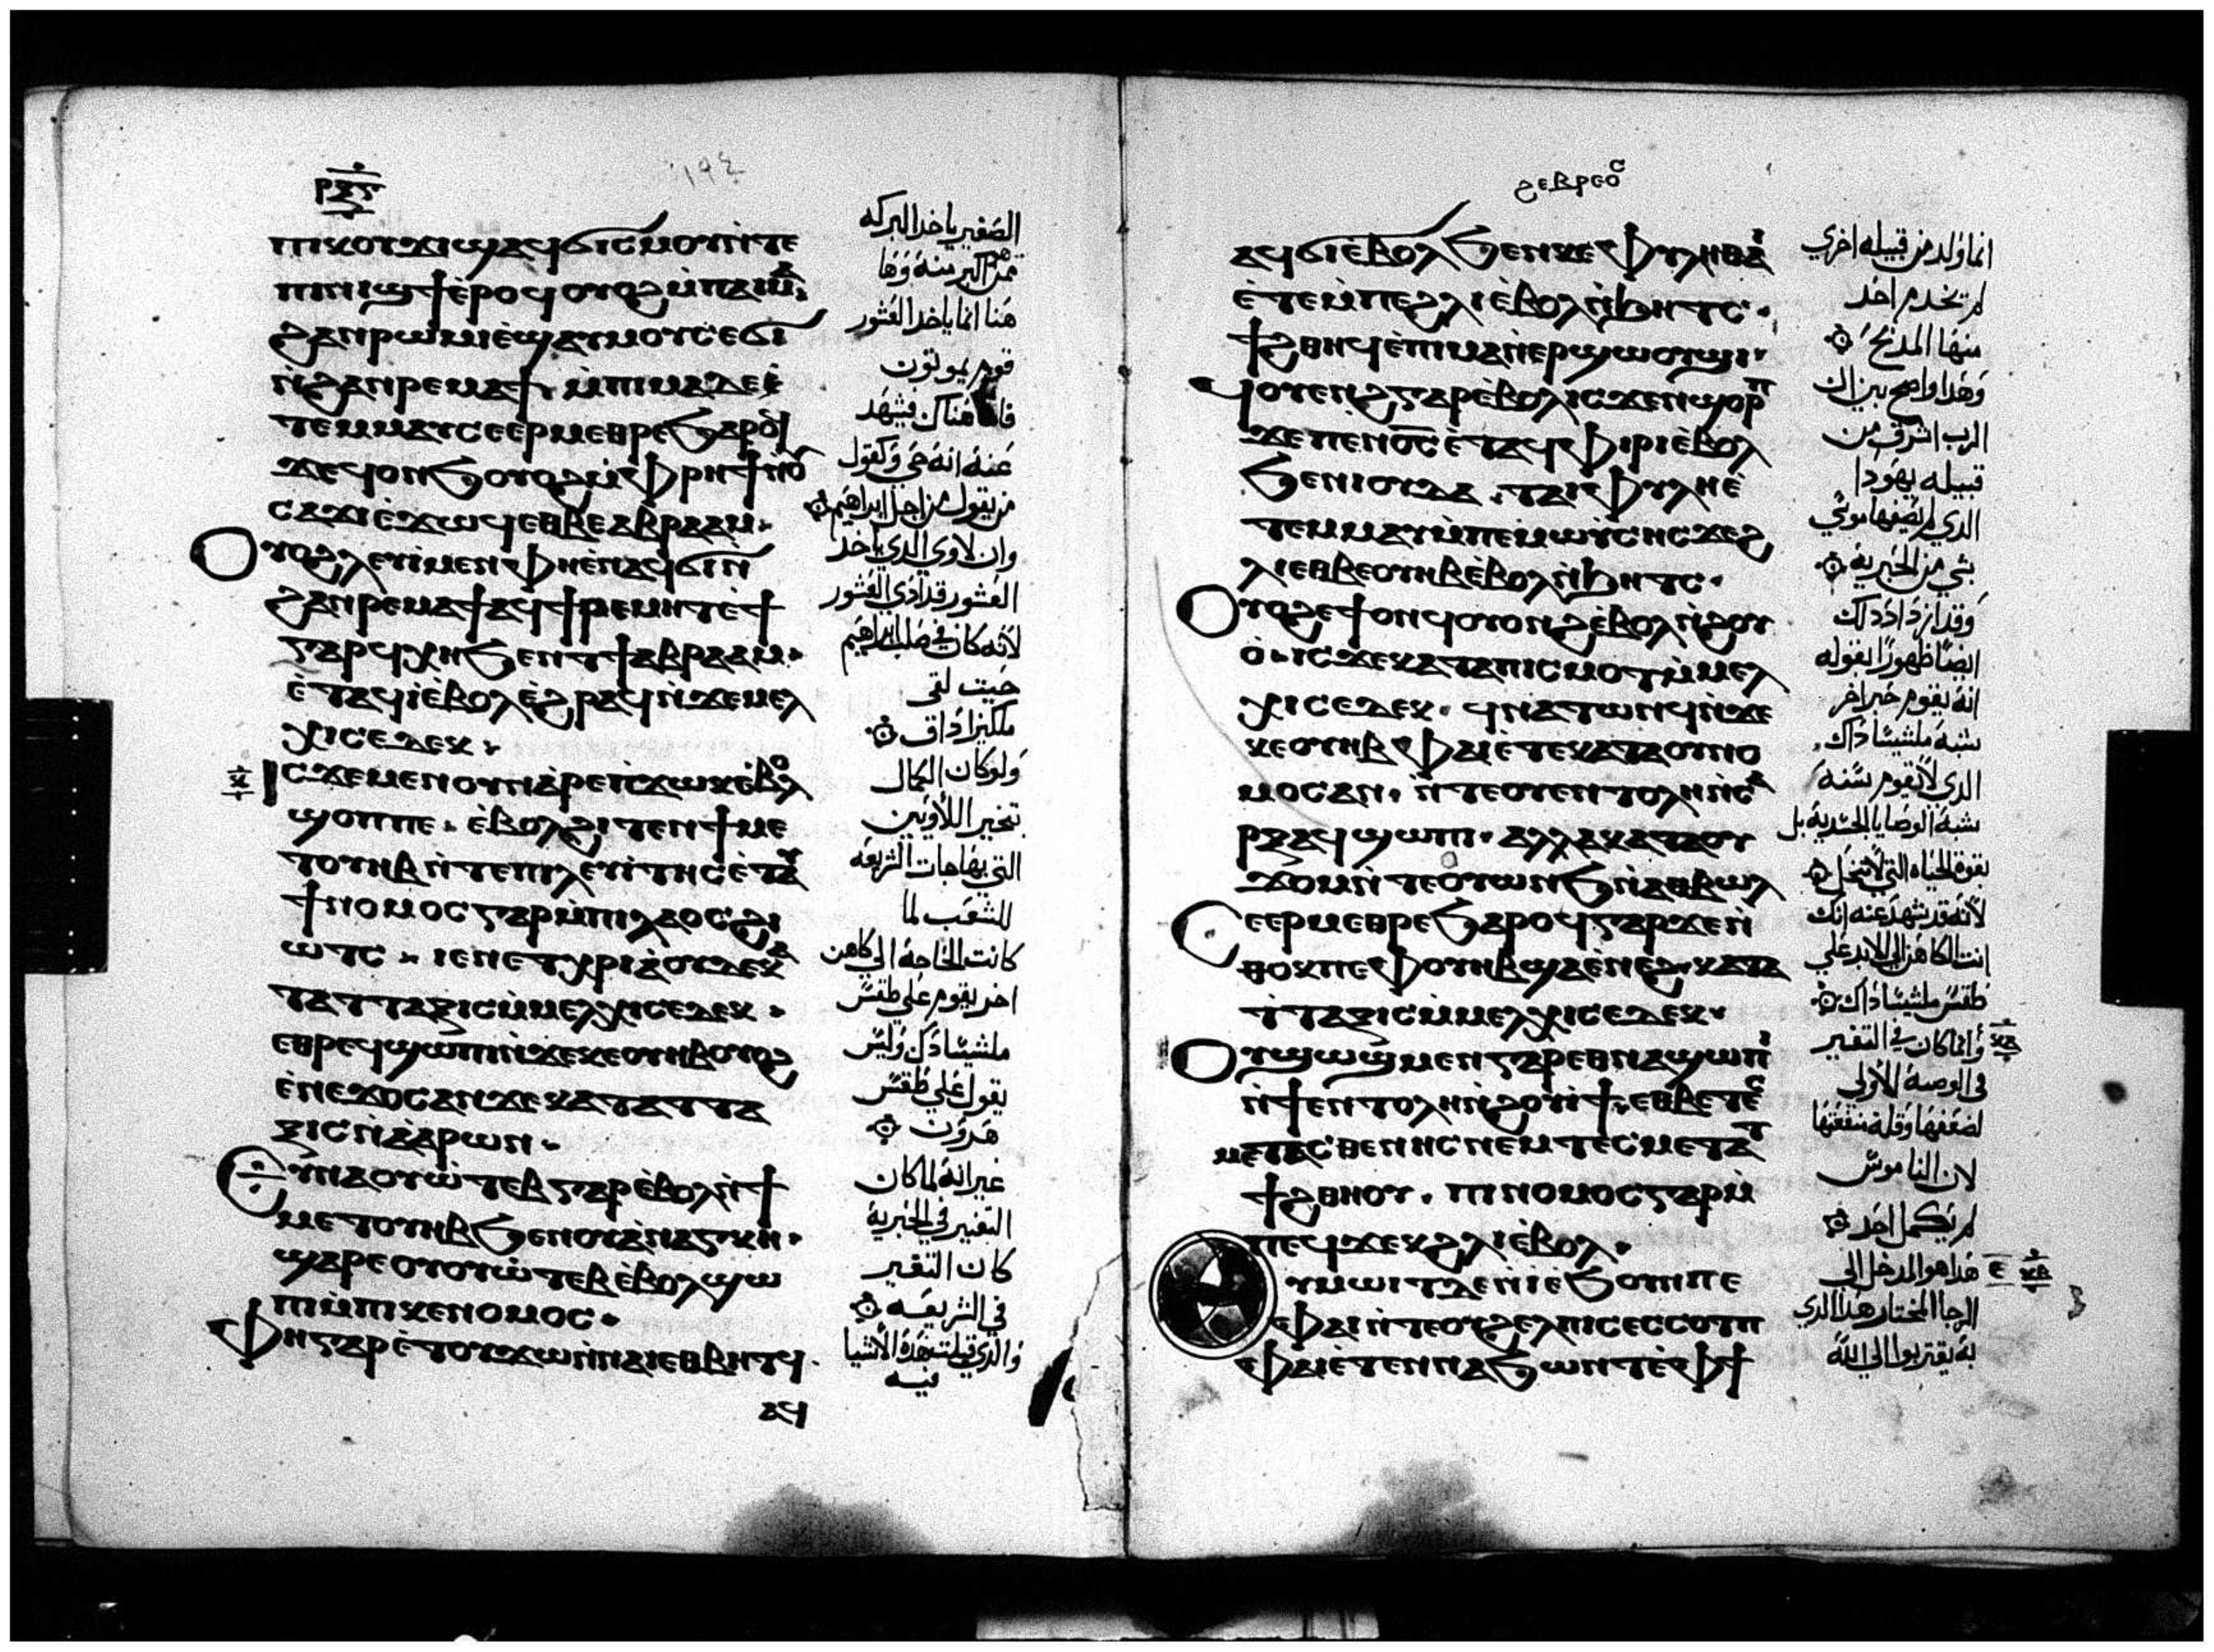 ⲣⲝⲋ
١٩٤
ⲡⲓⲕⲟⲩϫⲓϣⲁϥϭⲓⲥⲙⲟⲩⲛ̀ⲧⲉ
ⲡⲓⲛⲓϣϯⲉ̀ⲣⲟϥⲟⲩⲟϩⲙ̀ⲡⲁⲓⲙⲁ
ϩⲁⲛⲣⲱⲙⲓⲉ̀ϣⲁⲩⲙⲟⲩⲥⲉϭⲓ
ⲛ̀ϩⲁⲛⲣⲉⲙⲁϯ ⲙ̀ⲡⲓⲙⲁⲇⲉⲉ̀
ⲧⲉⲙⲙⲁⲩⲥⲉⲉⲣⲙⲉⲑⲣⲉϧⲁⲣⲟϥ
ϫⲉϥⲟⲛϧⲟⲩⲟϩⲙ̀ⲫⲣⲏϯⲛ̀ⲟⲩ
ⲥⲁϫⲓⲉ̀ϫⲱϥⲉⲑⲃⲉⲁⲃⲣⲁⲁⲙ·
ⲟⲩⲟϩⲗⲉⲩⲓ̀ⲙⲉⲛⲫⲏⲉ̀ⲛⲁϥϭⲓⲛ̀
ϩⲁⲛⲣⲉⲙⲁϯⲁϥϯⲣⲉⲙⲏⲧⲉ̀ϯ
ⲅⲁⲣϥⲭⲏϧⲉⲛⲧϯⲁⲃⲣⲁⲁⲙ·
ⲉ̀ⲧⲁϥⲓ̀ⲉ̀ⲃⲟⲗⲉ̀ϩⲣⲁϥⲛ̀ϫⲉⲙⲉⲗ
ⲭⲓⲥⲉⲇⲉⲕ·
ⲓⲥϫⲉⲙⲉⲛⲟⲩⲛⲁ̀ⲣⲉⲡ̀ϫⲱⲕⲉ̀ⲃⲟⲗ
ϣⲟⲡⲡⲉ· ⲉ̀ⲃⲟⲗϩⲓⲧⲉⲛϯⲙⲉ
ⲧⲟⲩⲏⲃⲛ̀ⲧⲉⲡⲓⲗⲉⲩⲓ̀ⲧⲏⲥⲉ̀ⲧⲁⲩ
ϯⲛⲟⲙⲟⲥⲅⲁⲣⲙ̀ⲡⲓⲗⲁⲟⲥϩⲓ
ⲱⲧⲥ· ⲓⲉⲛⲉⲧⲭⲣⲓⲁ̀ⲟⲩⲇⲉⲕⲁ
ⲧⲁⲧⲧⲁⲝⲓⲥⲙ̀ⲙⲉⲗⲭⲓⲥⲉⲇⲉⲕ·
ⲉⲑⲣⲉϥϣⲱⲡⲓⲛ̀ϫⲉⲕⲉⲟⲩⲏⲃⲟⲩⲟϩ
ⲉ̀ⲛⲉϫⲟⲥⲁⲛϫⲉⲕⲁⲧⲁⲧⲧⲁ
ⲝⲓⲥⲛ̀ⲁⲁⲣⲱⲛ·
ⲉⲩⲛⲁⲟⲩⲱ̀ⲧⲉⲃⲅⲁⲣⲉ̀ⲃⲟⲗⲛ̀ϯ
ⲙⲉⲧⲟⲩⲏⲃϧⲉⲛⲟⲩⲁ̀ⲛⲁⲅⲕⲏ·
ϣⲁⲣⲉⲟⲩⲟⲩⲱ̀ⲧⲉⲃⲉ̀ⲃⲟⲗϣⲱ
ⲡⲓⲙ̀ⲡⲓⲕⲉⲛⲟⲙⲟⲥ·
ⲫⲏⲅⲁⲣⲉ̀ⲧⲟⲩϫⲱⲛ̀ⲛⲁⲓⲉⲑⲃⲏⲧϥ
ⲁϥ
ⲕ
الصغير ياخد البركه
ممن اكبر منه وها
هنا انما ياخد العشور
قوم يموتون
فاما هناك فيشهد
عنه انه حي وكقول
من يقول من اجل ابراهيم
وان لاوي الدي ياخد
العشور قد ادي العشور
لانه كان في صلب ابراهيم
حيت لقى
ملكيزاداق
ولو كان الكمال
بتحبير اللاويين
التي بها جات الشريعه
للشعب لما
كانت الحاجه الي كاهن
اخر يقوم علي طقس
ملشيسادك وليس
يقول علي طقس
هرون
غير انه لما كان
التغير في الحبرية
كان التغير
في الشريعه
والدي قيلت هده الاشيا
فيه
ϩⲉⲃⲣⲉⲟⲥ
ⲁϥϭⲓⲉ̀ⲃⲟⲗϧⲉⲛⲕⲉⲫⲩⲗⲏⲑⲁⲓ
ⲉ̀ⲧⲉⲙ̀ⲡⲉϩⲗⲓⲉ̀ⲃⲟⲗⲛ̀ϧⲏⲧⲥ·
ϯϩⲑⲏϥⲉ̀ⲡⲓⲙⲁⲛ̀ⲉⲣϣⲱⲟⲩϣⲓ·
ϥⲟⲩⲉⲛϩⲅⲁⲣⲉ̀ⲃⲟⲗⲓⲥϫⲉⲛϣⲟⲣⲡ
ϫⲉⲡⲉⲛⲟⲥⲉ̀ⲧⲁϥⲫⲓⲣⲓⲉ̀ⲃⲟⲗ
ϧⲉⲛⲓⲟⲩⲇⲁ·ⲧⲁⲓⲫⲩⲗⲏⲉ̀
ⲧⲉⲙⲙⲁⲩⲙ̀ⲡⲉⲙⲱⲩⲥⲏⲥϫⲉϩ
ⲗⲓⲉⲑⲃⲉⲟⲩⲏⲃⲉ̀ⲃⲟⲗⲛ̀ϧⲏⲧⲥ·
ⲟⲩⲟϩⲉϯⲟⲛϥⲟⲩⲟⲛϩⲉ̀ⲃⲟⲗⲛ̀ϩⲟⲩ
ⲟ̀·ⲓⲥϫⲉⲕⲁⲧⲁⲡⲓⲥⲙⲟⲧⲙ̀ⲙⲉⲗ
ⲭⲓⲥⲉⲇⲉⲕ· ϥⲛⲁⲧⲱⲛϥⲛ̀ϫⲉ
ⲕⲉⲟⲩⲏⲃⲫⲁⲓⲉ̀ⲧⲉⲕⲁⲧⲁⲟⲩⲛⲟ
ⲙⲟⲥⲁⲛ· ⲛ̀ⲧⲉⲟⲩⲉⲛⲧⲟⲗⲏⲛ̀ⲥⲁ
ⲣⲝⲁϥϣⲱⲡⲓ·ⲁⲗⲗⲁⲕⲁⲧⲁⲟⲩ
ϫⲟⲙⲛ̀ⲧⲉⲟⲩⲱⲛϧⲛ̀ⲁⲑⲃⲱⲗ
ⲥⲉⲉⲣⲙⲉⲑⲣⲉϧⲁⲣⲟϥⲅⲁⲣϫⲉⲛ̀
ⲑⲟⲕⲡⲉⲫⲟⲩⲏⲃϣⲁⲉ̀ⲛⲉϩ·ⲕⲁⲧⲁ
ⲧ̀ⲧⲁⲝⲓⲥⲙ̀ⲙⲉⲗⲭⲓⲥⲉⲇⲉⲕ·
ⲟⲩϣⲱϣϥⲙⲉⲛⲅⲁⲣⲉⲑⲛⲁϣⲱⲡⲓ
ⲛ̀ϯⲉⲛⲧⲟⲗⲏⲛ̀ϩⲟⲩⲓ̀ϯ·ⲉⲑⲃⲉⲧⲉⲥ
ⲙⲉⲧⲁⲥⲑⲉⲛⲏⲥⲛⲉⲙⲧⲉⲥⲙⲉⲧⲁⲧ
ϯϩⲑⲏⲟⲩ· ⲡⲓⲛⲟⲙⲟⲥⲅⲁⲣⲙ̀
ⲡⲉϥϫⲉⲕϩⲗⲓⲉ̀ⲃⲟⲗ·
ⲟⲩⲙⲱⲓⲧⲇⲉⲛ̀ⲓⲉϧⲟⲩⲛⲡⲉ
ⲫⲁⲓⲛ̀ⲧⲉⲟⲩϩⲉⲗⲡⲓⲥⲉⲥⲥⲟⲧⲡ
ⲫⲁⲓⲉ̀ⲧⲉⲛⲛⲁϧⲱⲛⲧⲉ̀ⲫϯ
انما ولد من قبيله اخري
لم يخدم احد
منها المدبح
وهدا واضح بين ان
الرب اشرق من
قبيله يهودا
الدي لم يصفها موسي
بشي من الحبرية
وقد ازداد دلك
ايضا ظهورا بقوله
انه يقوم حبر اخر
بشبه ملشيساداك
الدي لا يقوم بسنه
بشبه الوصايا الجسدية بل
بقوة الحياه التي لا تنحل
لانه قد شهد عنه انك
انت الكاهن الي الابد علي
طقس ملشيساداك
وانما كان في التغير
في الوصية الاولي
لضعفها وقلة منفعتها
لان الناموس
لم يكمل احد
هدا هو المدخل الي
الرجا المختار هدا الدي
به يقتربوا الي الله
ⲕⲁ
ⲉ ⲕⲃ